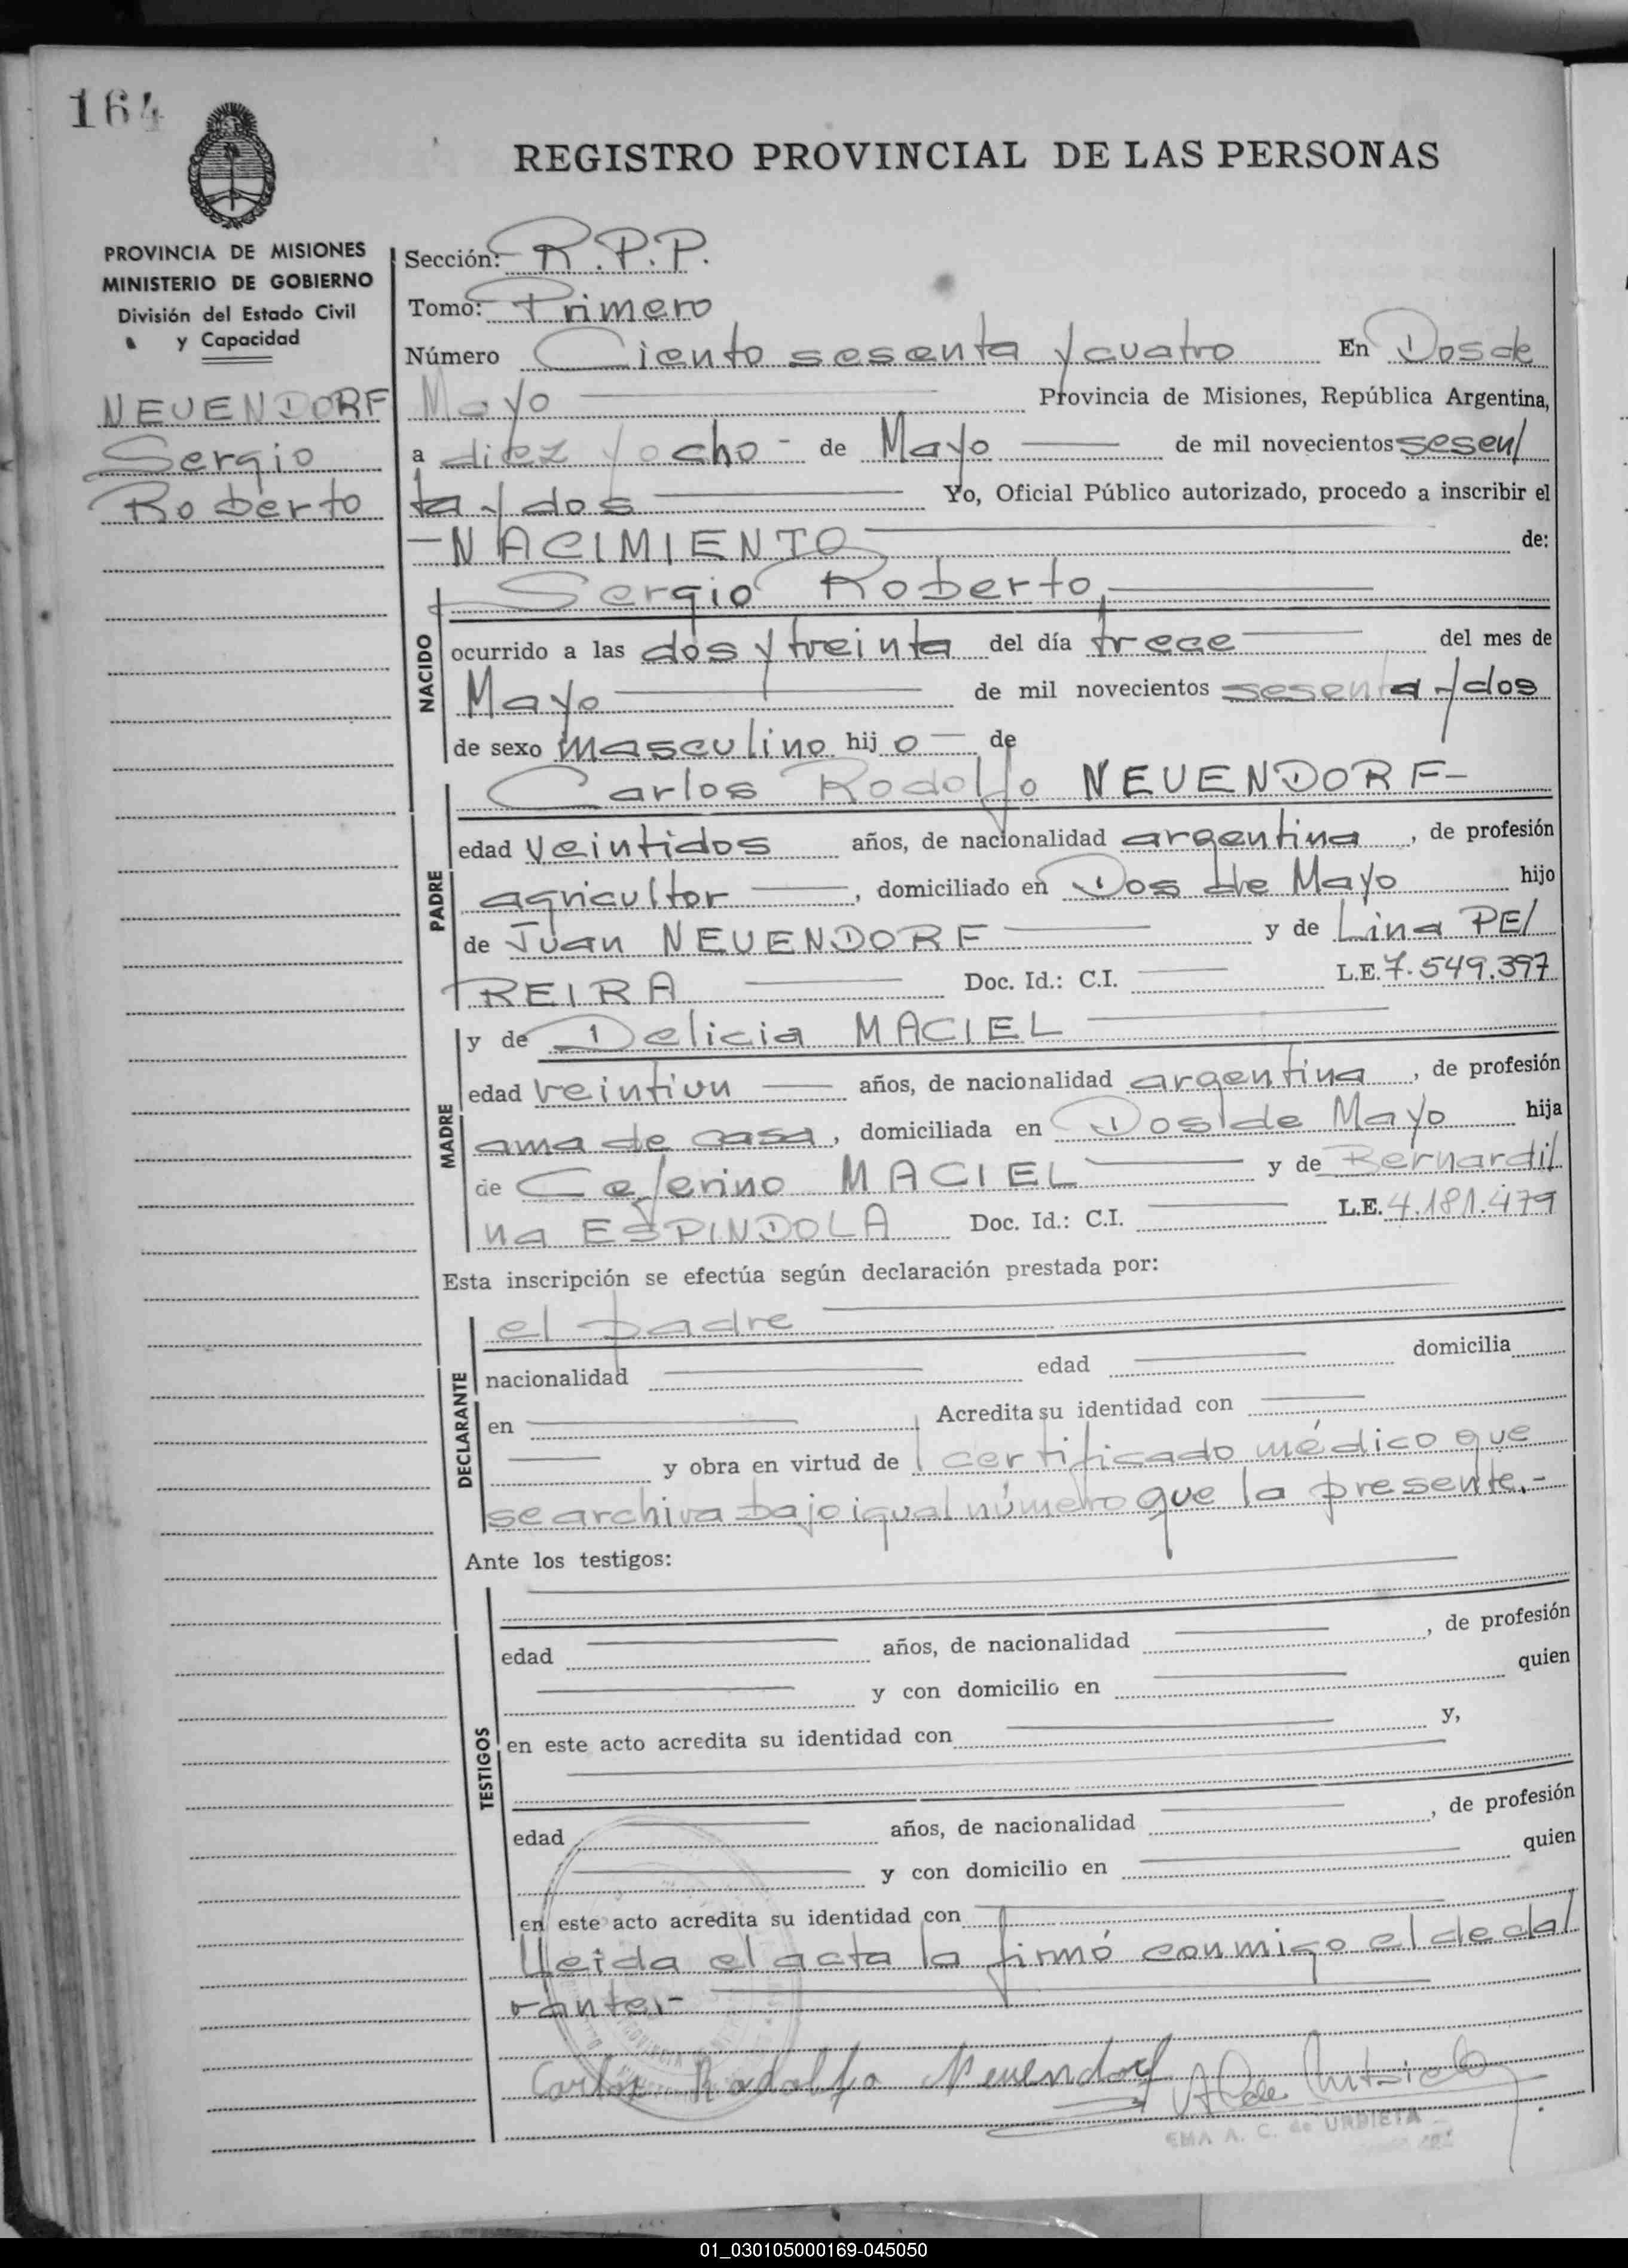 164
REGISTRO PROVINCIAL DE LAS PERSONAS
PROVINCIA DE MISIONES
MINISTERIO DE GOBIERNO
División del Estado Civil
y Capacidad
NEUENDORF
Sergio
Roberto
Sección: R.P.P.
Tomo: Primero
Número Ciento sesenta y cuatro En Dos de
Mayo Provincia de Misiones, República Argentina,
a diez y ocho - de Mayo de mil novecientos sesen/
ta y dos Yo, Oficial Público autorizado, procedo a inscribir el
-NACIMIENTO de:
NACIDO
Sergio Roberto,
ocurrido a las dos y treinta del día trece del mes de
Mayo de mil novecientos sesenta y dos
de sexo masculino hijo de
PADRE
Carlos Rodolfo NEUENDORF-
edad veintidos años, de nacionalidad argentina, de profesión
agricultor, domiciliado en Dos de Mayo hijo
de Juan NEUENDORF y de Lina PE/
REIRA Doc. Id.: C.I. L.E. 7.549.397
MADRE
y de Delicia MACIEL
edad veintiun años, de nacionalidad argentina, de profesión
ama de casa, domiciliada en Dos de Mayo hija
de Ceferino MACIEL y de Bernardi/
na ESPINDOLA Doc. Id.: C.I. L.E. 4.181.479
Esta inscripción se efectúa según declaración prestada por:
DECLARANTE
el padre
nacionalidad edad domicilia
en Acredita su identidad con
y obra en virtud de certificado médico que
se archiva bajo igual número que la presente.-
Ante los testigos:
TESTIGOS
edad años, de nacionalidad , de profesión
y con domicilio en quien
en este acto acredita su identidad con y,
edad años, de nacionalidad , de profesión
y con domicilio en quien
en este acto acredita su identidad con
Lleida el acta la firmó conmigo el decla/
rante.-
Carlos Rodolfo Neuendorf
EMA A. C. de URBIETA
01_030105000169-045050